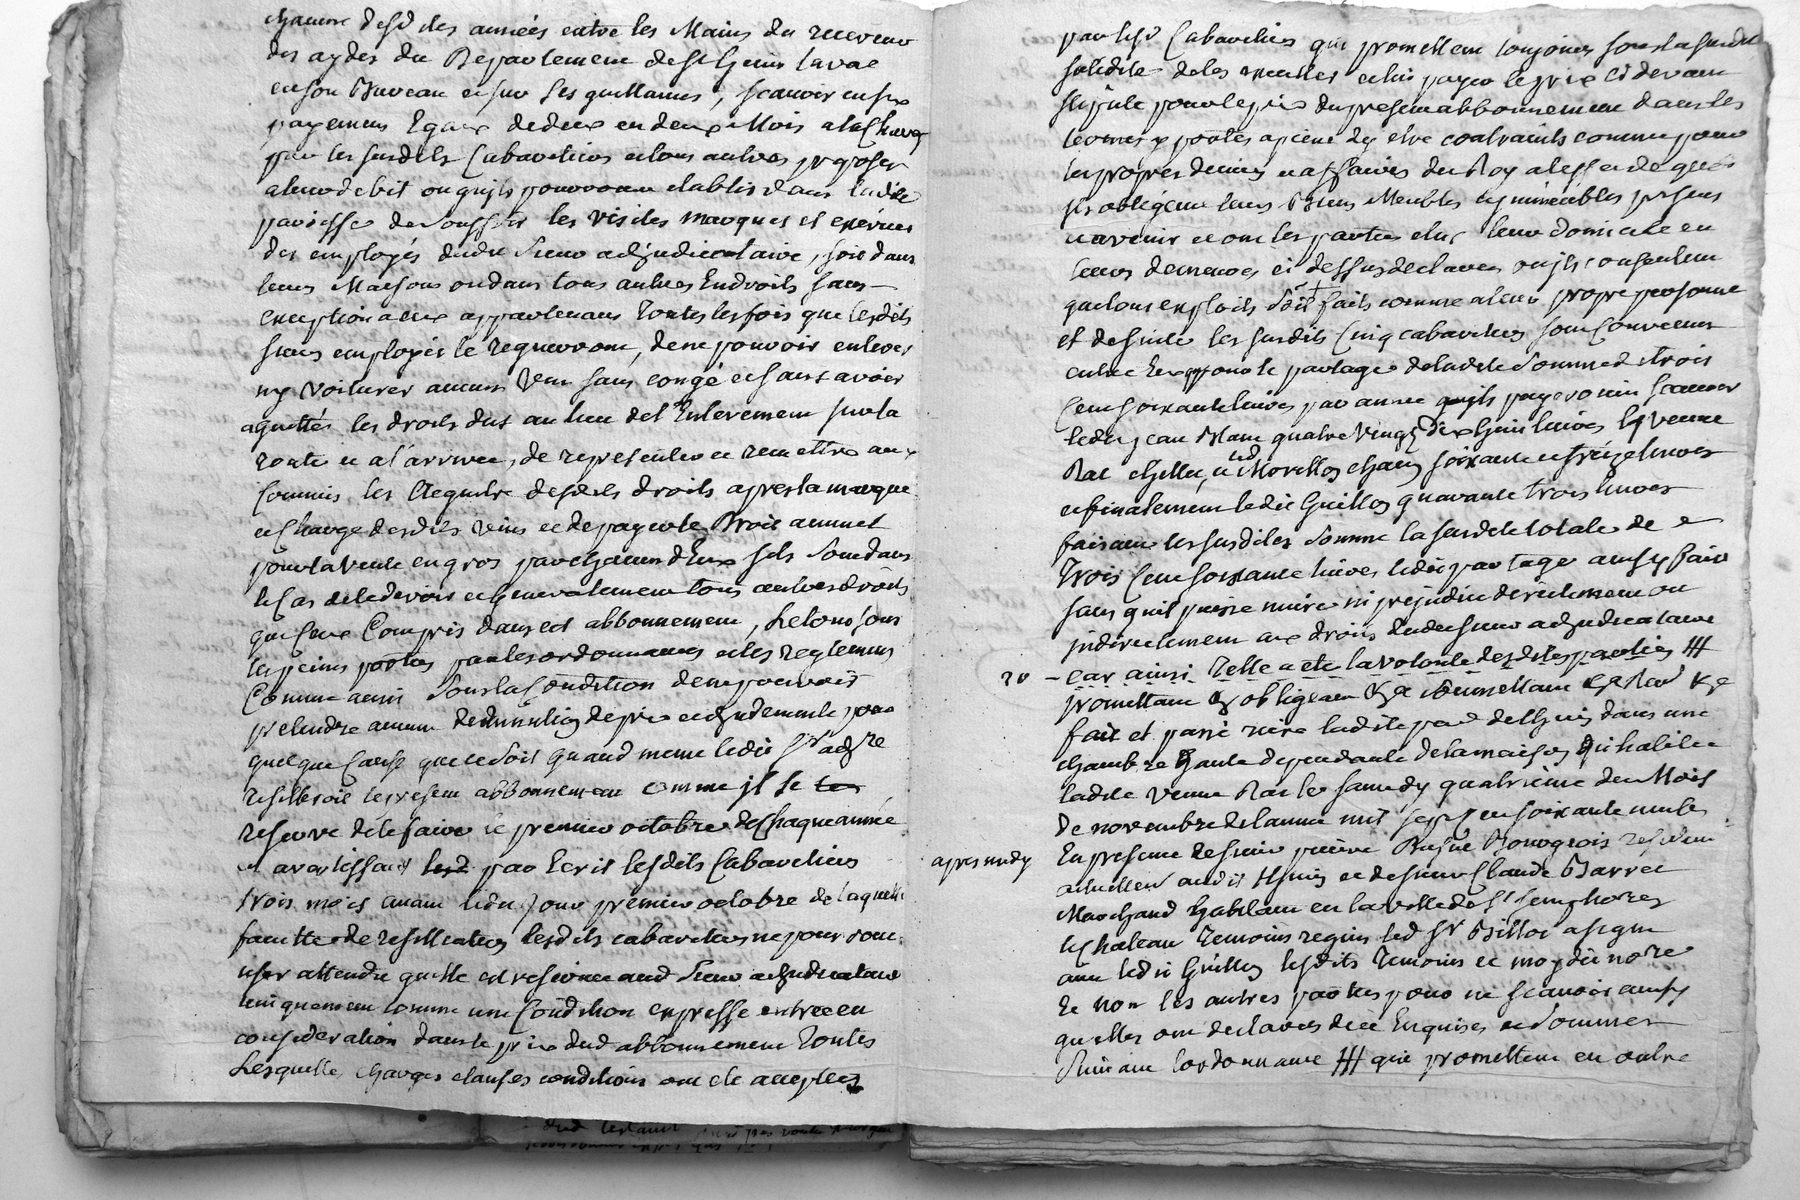 chacune desd. des années entre les Mains du receveur
des aydes du Departement de St Genis Laval
en son Bureau et sur ses quittances, scavoir en six
payemens Egaux de deux en deux Mois a la Charge
par les susdits Cabaretiers et tous autres preposés
a leur debit ou qu'ils pourroient etablir dans ladite
paroisse de souffrir les visites marques et exercices
des employés dudit Sieur adjudicataire, soit dans
leurs Maisons ou dans tous autres Endroits sans
exception a eux appartenans Toutes les fois que lesdits
sieurs employés le requerront, de ne pouvoir enlever
ny voiturer aucuns Vins sans congé et sans avoir
aquittés les droits dus au lieu de l'Enlevement sur la
route et a l'arrivée, de representer et remettre aux
Commis les Acquits desdits droits apres la marque
et Charge desdits vins et de payer le Droit annuel
pour la vente en gros par chacun d'Eux s'ils sont dans
le Cas de le devoir et generalement tous autres droits
que ceux Compris dans cet abbonnement, Le tout sous
les peines portées par les ordonnances et les reglemens
Comme aussi Sous la Condition de ne pouvoir
pretendre aucune diminution de prix et indemnité pour
quelque Cause que ce Soit quand meme ledit Sr adjre
resilieroit le present abbonnement comme il se
reserve de le faire le premier octobre de Chaque année
en avertissant par Ecrit lesdits Cabaretiers
trois mois avant ledit jour premier octobre de laquelle
faculté de resiliation lesdits cabaretiers ne pourront
user attendu qu'elle est reservée aud. Sieur adjudicataire
uniquement comme une Condition expresse entrée en
consideration dans le prix dud. abbonnement Toutes
Lesquelles charges clauses conditions ont été acceptées
par lesd. Cabaretiers qui promettent toujours sous la susdite
solidité de les executer et lui payer le prix cidevant
stipulé pour le prix du present abbonnement dans les
termes y portés a peine d'y etre contraints comme pour
les propres deniers et affaires du Roy a l'effet de quoi
ils obligent leurs Biens Meubles et immeubles presens
et avenir et ont les parties elus leur domicile en
leurs demeures ci dessus declarées ou ils consentent
que tous exploits soit faits comme a leur propre personne
et de suite les susdits Cinq cabaretiers sont Convenus
entre Eux pour le partage de ladite Somme de trois
Cent soixante livres par année qu'ils payeront scavoir
ledit Jean Blanc quatre Vingt dix huit livres la veuve
et led. Morellon chacun soixante et treize livres
et finalement ledit Guillon quarante trois livres
faisant les susdites Somme la susdite totale de
Trois Cent soixante livres ledit partage ainsy fait
sans qu'il puisse nuire ni prejudicier directement ou
indirectement aux droits dudit Sieur adjudicataire
20 – car ainsi Telle a eté la volonté desdites parties ///
promettant &a obligeant &a soumettant &a Ren. &a
fait et passé rière ladite par. d'Yrigny dans une
chambre haute dependante de la maison qu'habite
ladite veuve le samedy quatrieme du Mois
de novembre de l'année mil sept cent soixante
apres midy En presence de sieur pierre Bourgeois resident
actuellement audit et de sieur Claude Barret
Marchand habitant en la ville de St Simphorien
le Chateau Temoins requis led. Sr Billot a signé
avec ledit Guillon lesdits Temoins et moydit nore
Et non les autres parties pour ne scavoir ainsy
qu'elles ont declarées de ce Enquises et Sommées
Suivant l'ordonnance /// qui promettent en outre